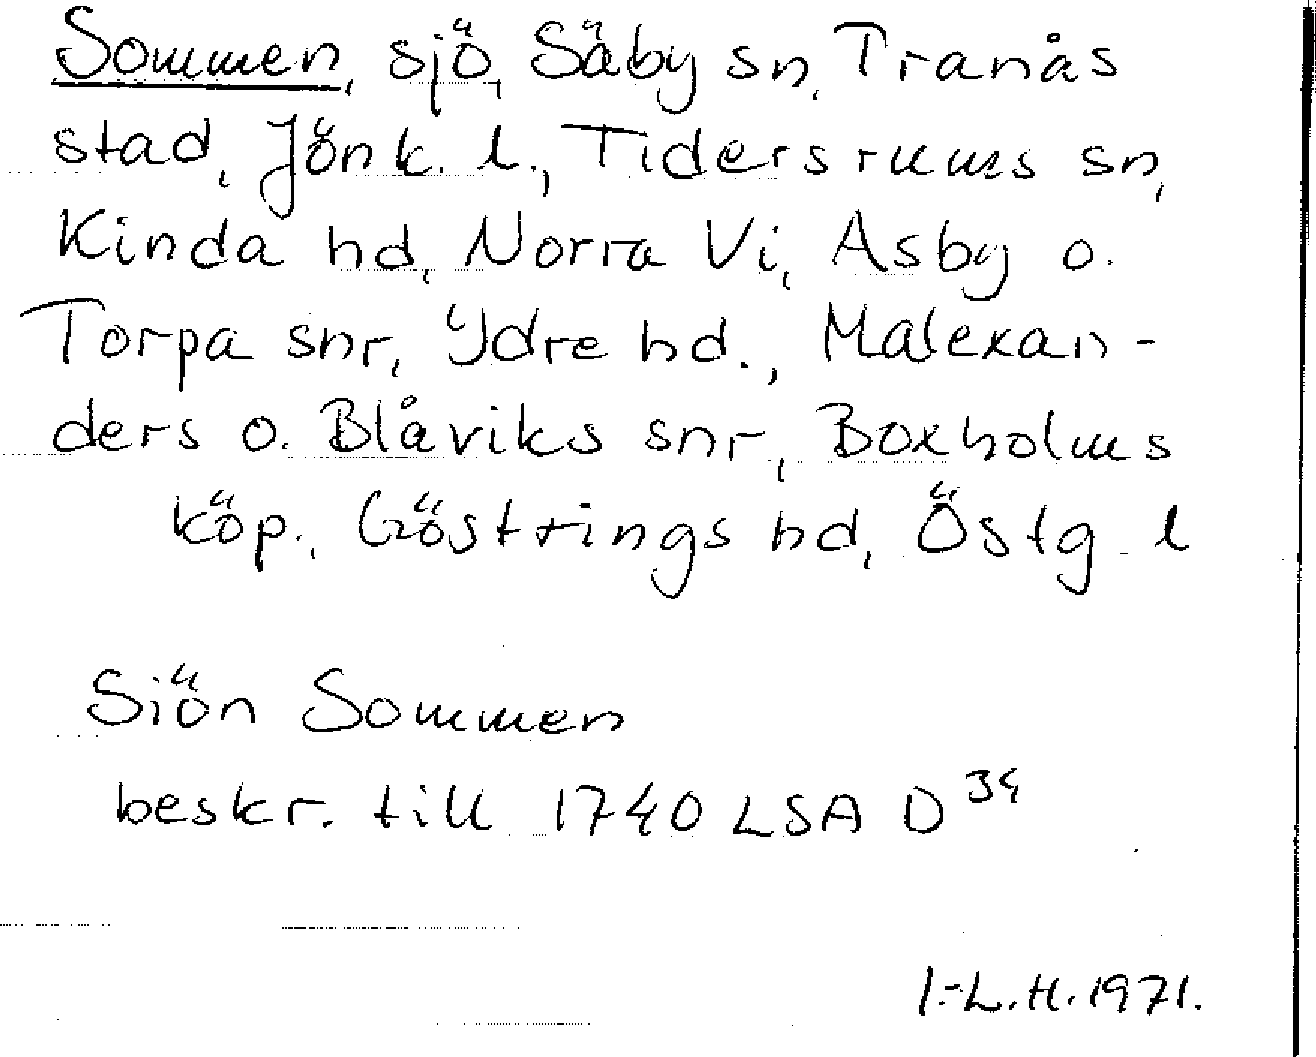 Sommen, sjö, Säby sn, Tranås
stad, Jönk. l., Tidersrums sn,
Kinda hd, Norra Vi, Asby o.
Torpa snr, Ydre hd., Malexan-
ders o. Blåviks snr, Boxholms
köp., Göstrings hd, Östg. l
Siön Sommen
beskr. till 1740 LSA D 34
I.-L.H. 1971.